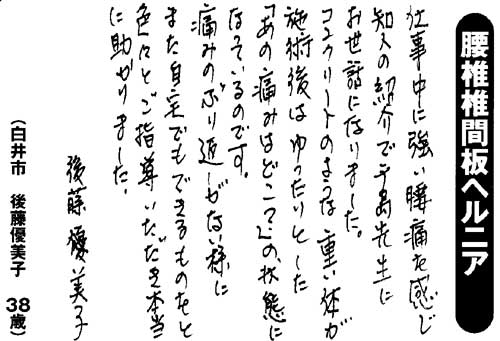 腰椎椎間板ヘルニア
仕事中に強い腰痛を感じ
知人の紹介で手島先生に
お世話になりました。
コンクリートのような重い体が
施術後はゆったりとした
「あの痛みはどこ?」の状態に
なっているのです。
痛みのぶり返しがない様に
また自宅でもできるものをと
色々とご指導いただき本当
に助かりました。
後藤優美子
（白井市 後藤優美子 38歳）